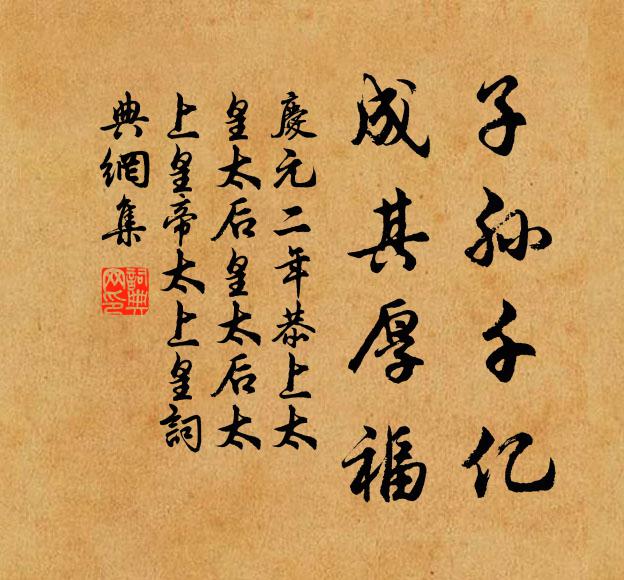 子孙千亿
成其厚福
慶元二年恭上太
皇太后皇太后太
上皇帝太上皇詞
典網集
詞典網印